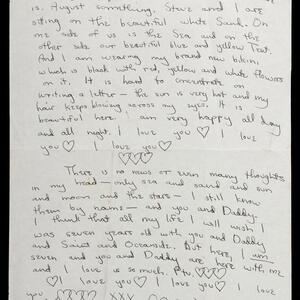 is. August something. Steve and I are
sitting on the beautiful white Sand. On
one side of us is the Sea and on the
other side our beautiful blue and yellow Tent.
And I am wearing my brand new bikini
which is black with red, yellow and white flowers
on it. It is hard to concentrate on
writing a letter - the sun is very hot and my
hair keeps blowing across my eyes. It is
beautiful here. I am very happy all day
and all night. I love you ♡ I love
you ♡ I love you ♡
♡♡♡♡
There is no news or even many thoughts
in my head - only sea and sand and sun
and moon and the stars - I still know
them by name - and you and Daddy.
I think that all my life I will wish I
was seven years old with you and Daddy
and and Oceanside. But here, I am
seven and you and Daddy are here with me
and I love is so much. ♡♡♡
♡ I love you ♡ I love you ♡ I love
you ♡♡♡♡ XXX